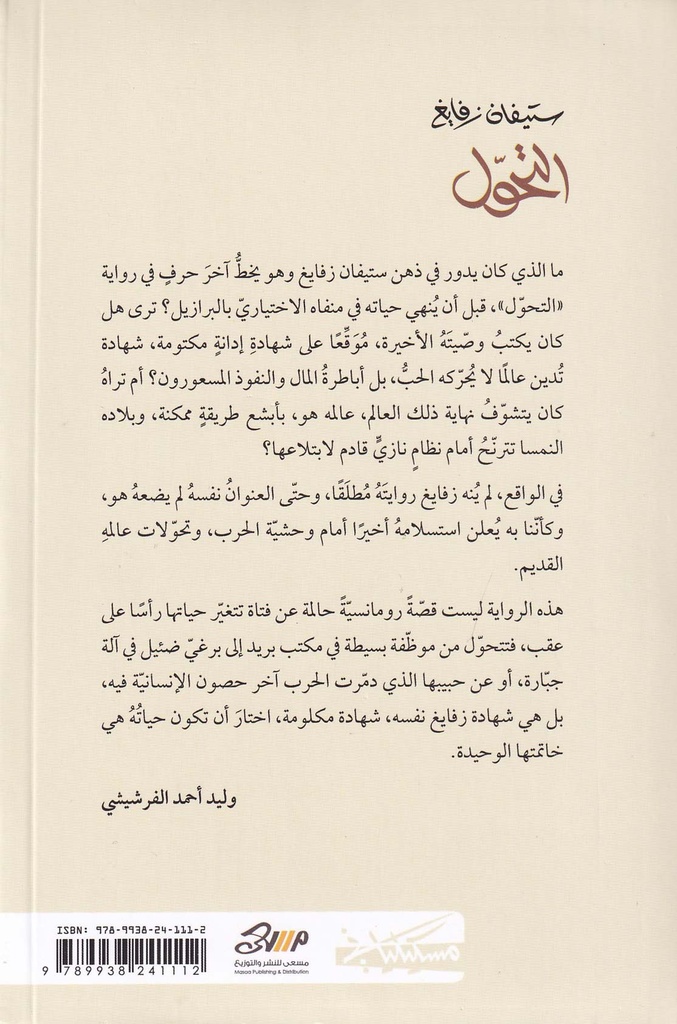 ستيفان زفايغ
التحوّل
ما الذي كان يدور في ذهن ستيفان زفايغ وهو يخطُّ آخرَ حرفٍ في رواية
«التحوّل»، قبل أن يُنهي حياته في منفاه الاختياريّ بالبرازيل؟ ترى هل
كان يكتبُ وصّيتَهُ الأخيرة، مُوَقِّعًا على شهادةِ إدانةٍ مكتومة، شهادة
تُدين عالمًا لا يُحرّكه الحبُّ، بل أباطرةُ المال والنفوذ المسعورون؟ أم تراهُ
كان يتشوّفُ نهاية ذلك العالم، عالمه هو، بأبشع طريقةٍ ممكنة، وبلاده
النمسا تترنّحُ أمام نظامٍ نازيٍّ قادم لابتلاعها؟
في الواقع، لم يُنه زفايغ روايتَهُ مُطلَقًا، وحتّى العنوانُ نفسهُ لم يضعهُ هو،
وكأنّنا به يُعلن استسلامهُ أخيرًا أمام وحشيّة الحرب، وتحوّلات عالمهِ
القديم.
هذه الرواية ليست قصّةً رومانسيّةً حالمة عن فتاة تتغيّر حياتها رأسًا على
عقب، فتتحوّل من موظّفة بسيطة في مكتب بريد إلى برغيّ ضئيل في آلة
جبّارة، أو عن حبيبها الذي دمّرت الحرب آخر حصون الإنسانيّة فيه،
بل هي شهادة زفايغ نفسه، شهادة مكلومة، اختارَ أن تكون حياتُهُ هي
خاتمتها الوحيدة.
وليد أحمد الفرشيشي
ISBN: 978-9938-24-111-2
9 789938 241112
مسعى
مسعى للنشر والتوزيع
Masaa Publishing & Distribution